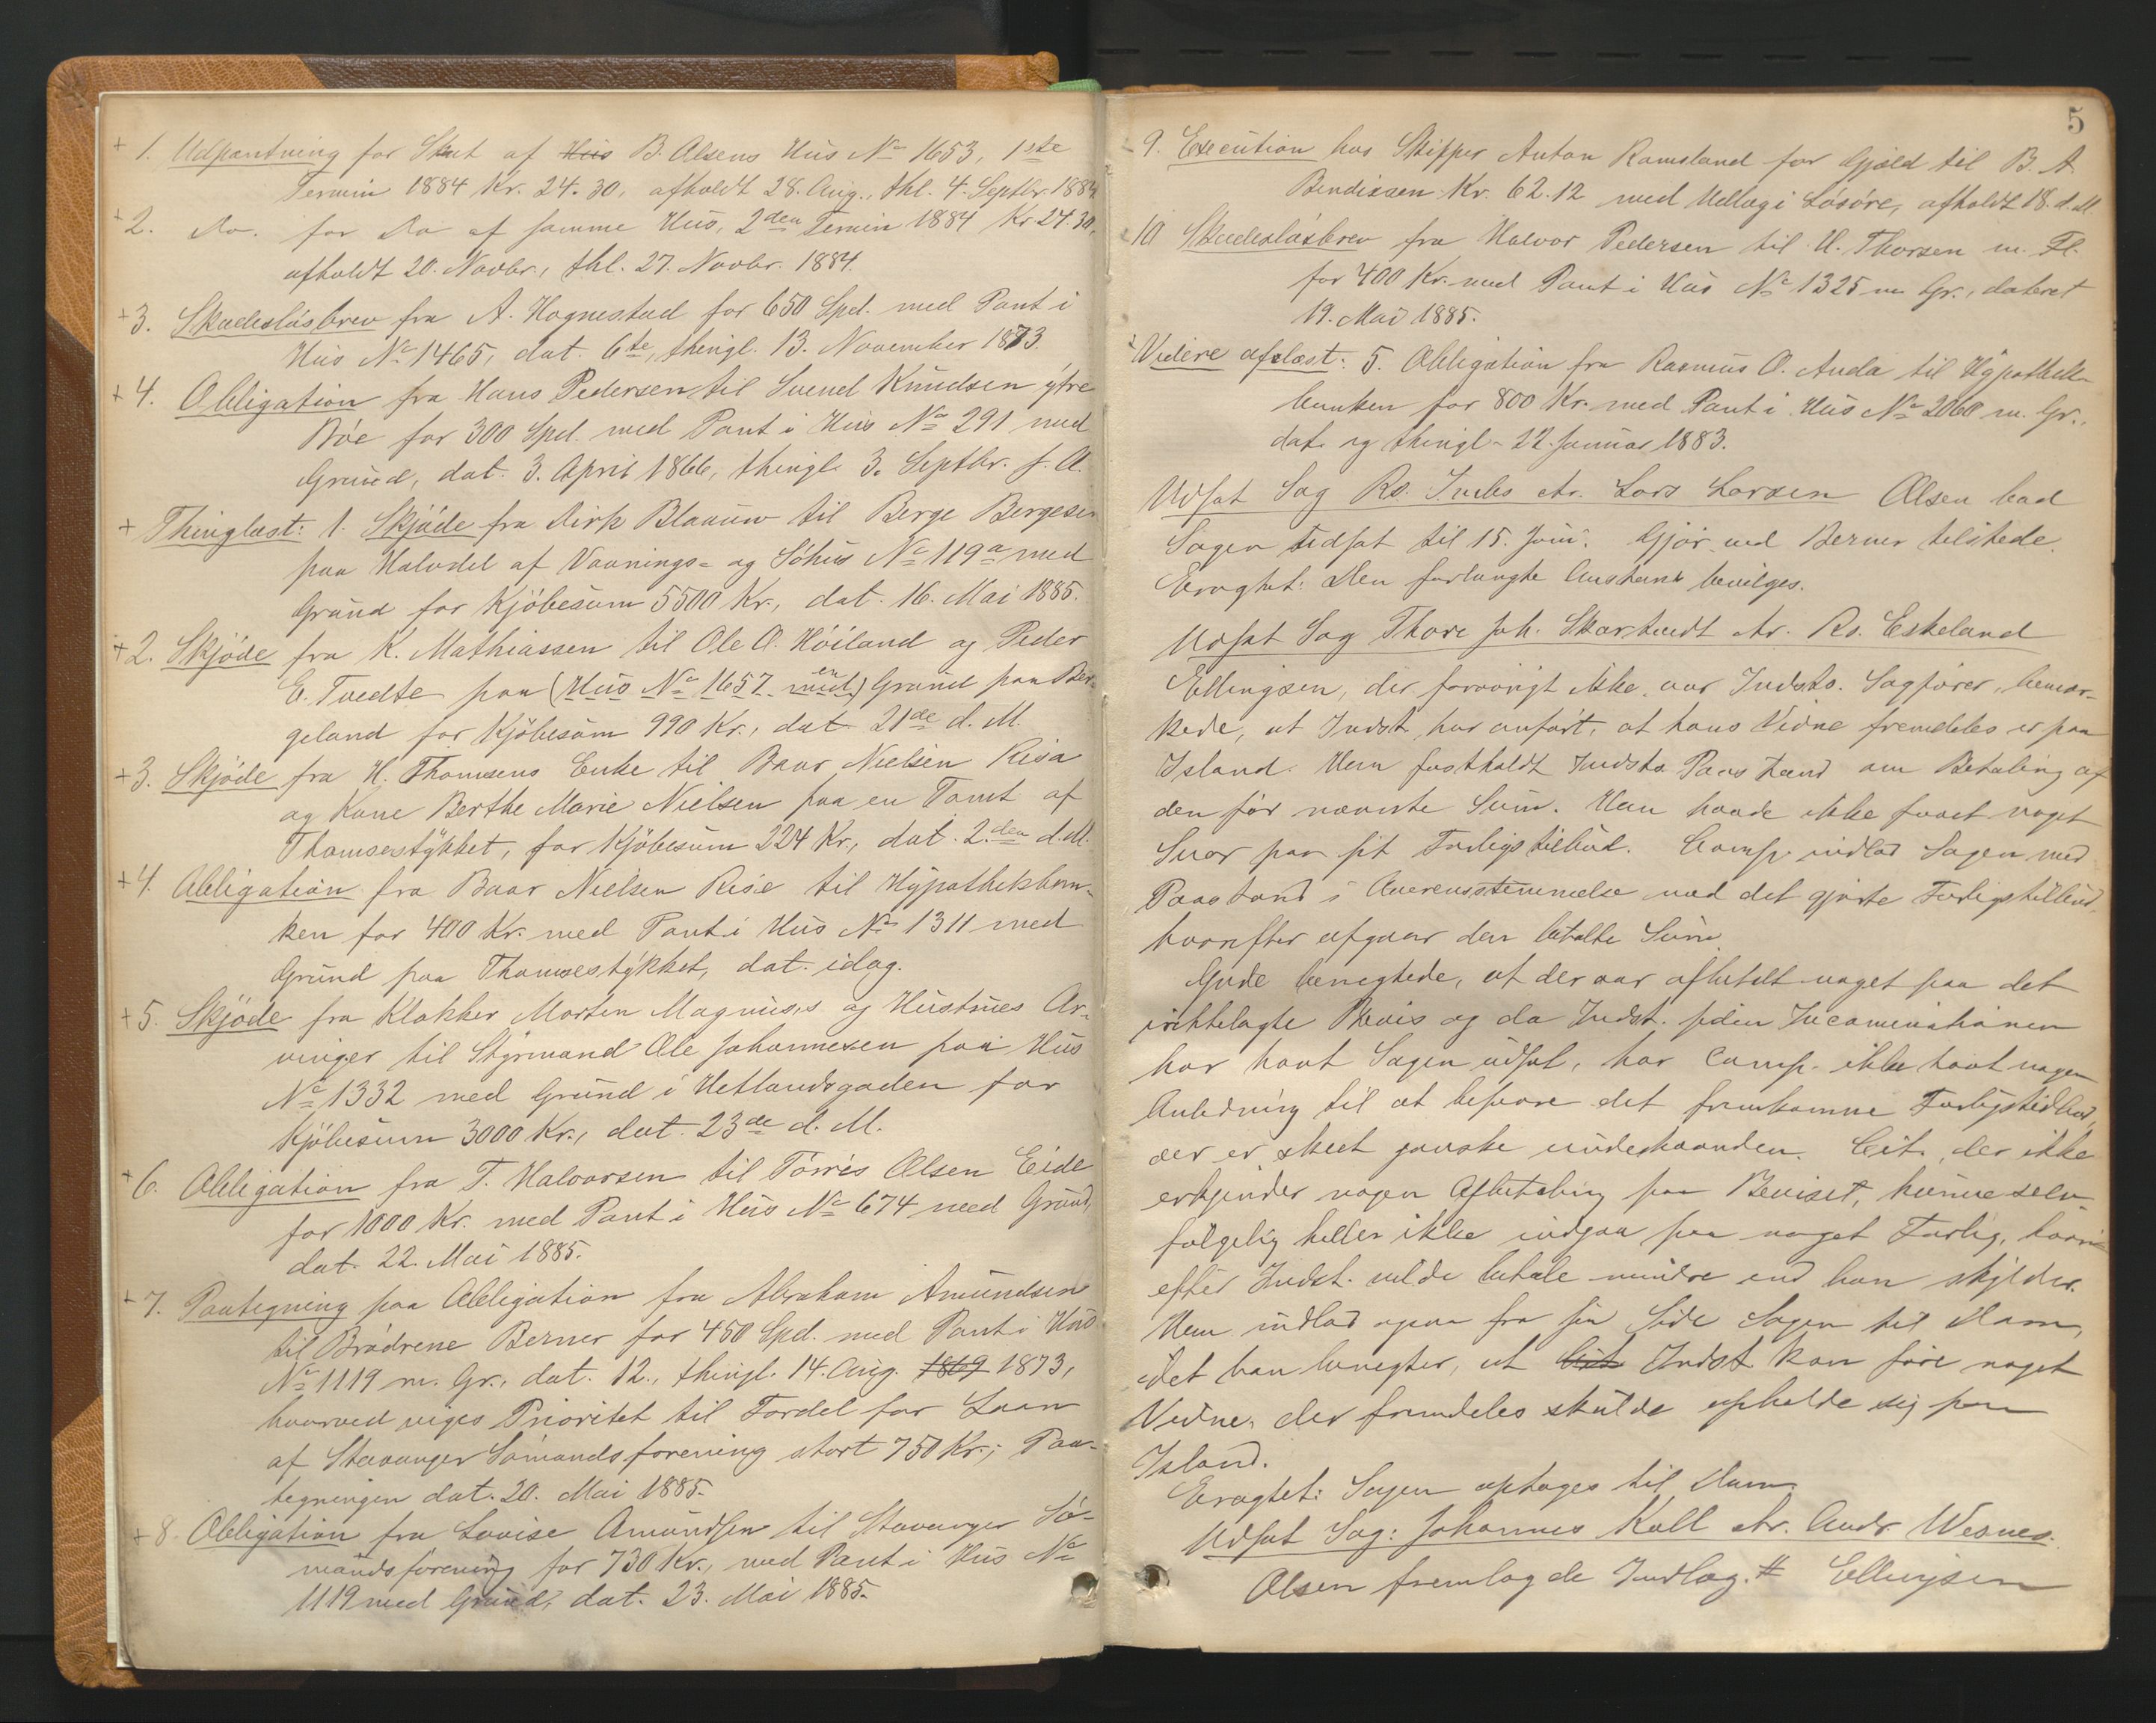 + 1. Udpantning for Skat af Hus B. Olsens Hus No 1653, 1ste
Termin 1884 Kr. 24.30, afholdt 28. Aug., thl. 4. Septbr. 1884
+ 2. Do. for Do af samme Hus, 2den Termin 1884 Kr 24.30,
afholdt 20. Novbr., thl. 27. Novbr. 1884.
+ 3. Skadesløsbrev fra A. Hognestad for 650 Spd. med Pant i
Hus No 1465, dat. 6te, thingl. 13. November 1873.
+ 4. Obligation fra Hans Pedersen til Svend Knudsen ytre
Bøe for 300 Spd. med Pant i Hus No 291 med
Grund, dat. 3. April 1866, thingl. 3. Septbr. s. A.
+ Thinglæst: 1. Skjøde fra Dirk Blaauw til Berge Bergesen
paa Halvdel af Vaanings- og Søhus No 119a med
Grund for Kjøbesum 5500 Kr., dat. 16. Mai 1885.
+ 2. Skjøde fra K. Mathiassen til Ole O. Høiland og Peder
E. Tvedte paa (Hus No 1657 med) en Grund paa Ber-
geland for Kjøbesum 990 Kr., dat 21de d. M.
+ 3. Skjøde fra H. Thomsens Enke til Baar Nielsen Risa
og Kone Berthe Marie Nielsen paa en Tomt af
Thomsestykket, for Kjøbesum 224 Kr., dat. 2.den d. M.
+ 4. Obligation fra Baar Nielsen Rise til Hypothekban-
ken for 400 Kr. med Pant i Hus No 1311 med
Grund paa Thomsestykket, dat. idag.
+ 5. Skjøde fra Klokker Morten Magnus's og Hustrues Ar-
vinger til Styrmand Ole Johannesen paa Hus
No 1332 med Grund i Hetlandsgaden for
Kjøbesum 3000 Kr., dat. 23de d. M.
+ 6. Obligation fra T. Halvorsen til Tørris Olsen Eide
for 1000 Kr. med Pant i Hus No 674 med Grund,
dat. 22. Mai 1885.
+ 7. Paategning paa Obligation fra Abraham Amundsen
til Brødrene Berner for 450 Spd. med Pant i Hus
No 1119 m. Gr., dat. 12., thingl. 14. Aug. 1869 1873,
hvorved viges Prioritet til Fordel for Laan
af Stavanger Sømandsforening stort 750 Kr.; Paa-
tegningen dat. 20. Mai 1885.
+ 8. Obligation fra Lovise Amundsen til Stavanger Sø-
mandsforening for 730 Kr., med Pant i Hus No
1119 med Grund, dat. 23. Mai 1885.
5
9. Execution hos Skipper Anton Ramsland for Gjæld til B. A.
Bendixsen Kr. 62.12 med Udlæg i Løsøre, afholdt 18. d. M.
10 Skadesløsbrev fra Halvor Pedersen til H. Thorsen m. Fl.
for 400 Kr. med Pant i Hus No 1325 m Gr., dateret
19. Mai 1885.
Videre aflæst: 5. Obligation fra Rasmus O. Anda til Hypothek-
banken for 800 Kr. med Pant i Hus No 2060 m. Gr.,
dat. og thingl. 22. Januar 1883.
Udsat Sag Rs. ctr. Lars Larsen Olsen bad
Sagen udsat til 15. Juni. Gjør ved Berner tilstede.
Eragtet: Den forlangte Anstand bevilges.
Udsat Sag Thore Joh. Skartvedt ctr. Rs. Eskeland
Ellingsen, der forøvrigt ikke var Indsts. Sagfører, bemær-
kede, at Indst. har anført, at hans Vidne fremdeles er paa
Island. Han fastholdt Indsts. Paastand om Betaling af
den før nævnte Sum. Han havde ikke faaet noget
Svar paa sit Forligstilbud. Comp. indlod Sagen med
Paastand i Overensstemmelse med det gjorte Forligstilbud,
hvorefter afgaar den betalte Sum.
Gude benegtede, at der var afbetalt noget paa det
irettelagte Bevis og da Indst. siden Incaminationen
har havt Sagen udsat, har Comp. ikke havt nogen
Anledning til at besvare det fremkomne Forligstilbud,
der er skeet ganske underhaanden. Cit., der ikke
erkjender nogen Afbetaling paa Beviset, kunne selv-
følgelig heller ikke indgaa paa noget Forlig, hvor-
efter Indst. vilde betale mindre end han skylder.
Han indlod ogsaa fra sin Side Sagen til Dom,
idet han benegter, at Cit Indst kan føre noget
Vidne, der fremdeles skulde opholde sig paa
Island.
Eragtet: Sagen optages til Dom.
Udsat Sag: Johannes Kall ctr. Andr Wesnes.
Olsen fremlagde Indlæg. # Ellingsen